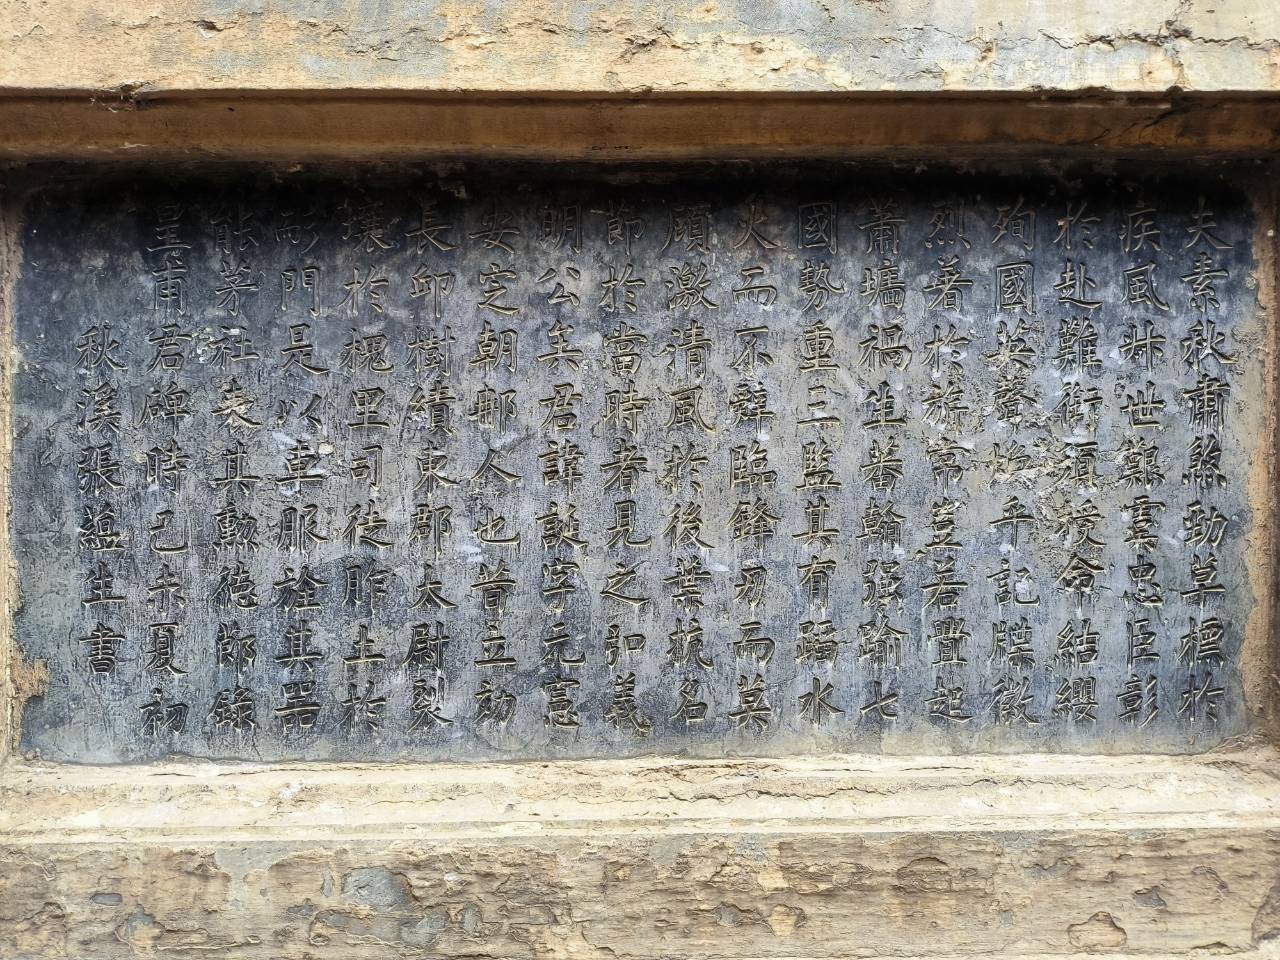 夫素秋肅煞勁草標於
疾風叔世艱雲忠臣彰
於赴難銜須授命結纓
殉國英聲煥乎記牒徽
烈著於旂常豈若舋起
蕭墻禍生蕃翰强踰七
國勢重三監其有蹈水
火而不辭臨鋒刃而莫
顧激清風於後葉抗名
節於當時者見之弘義
明公矣君諱誕字元憲
安定朝那人也昔立効
長邱樹績東郡太尉裂
壤於槐里司徒胙土於
耏門是以車服旌其器
能茅社表其勳德節錄
皇甫君碑時己未夏初
秋溪張蕴生書